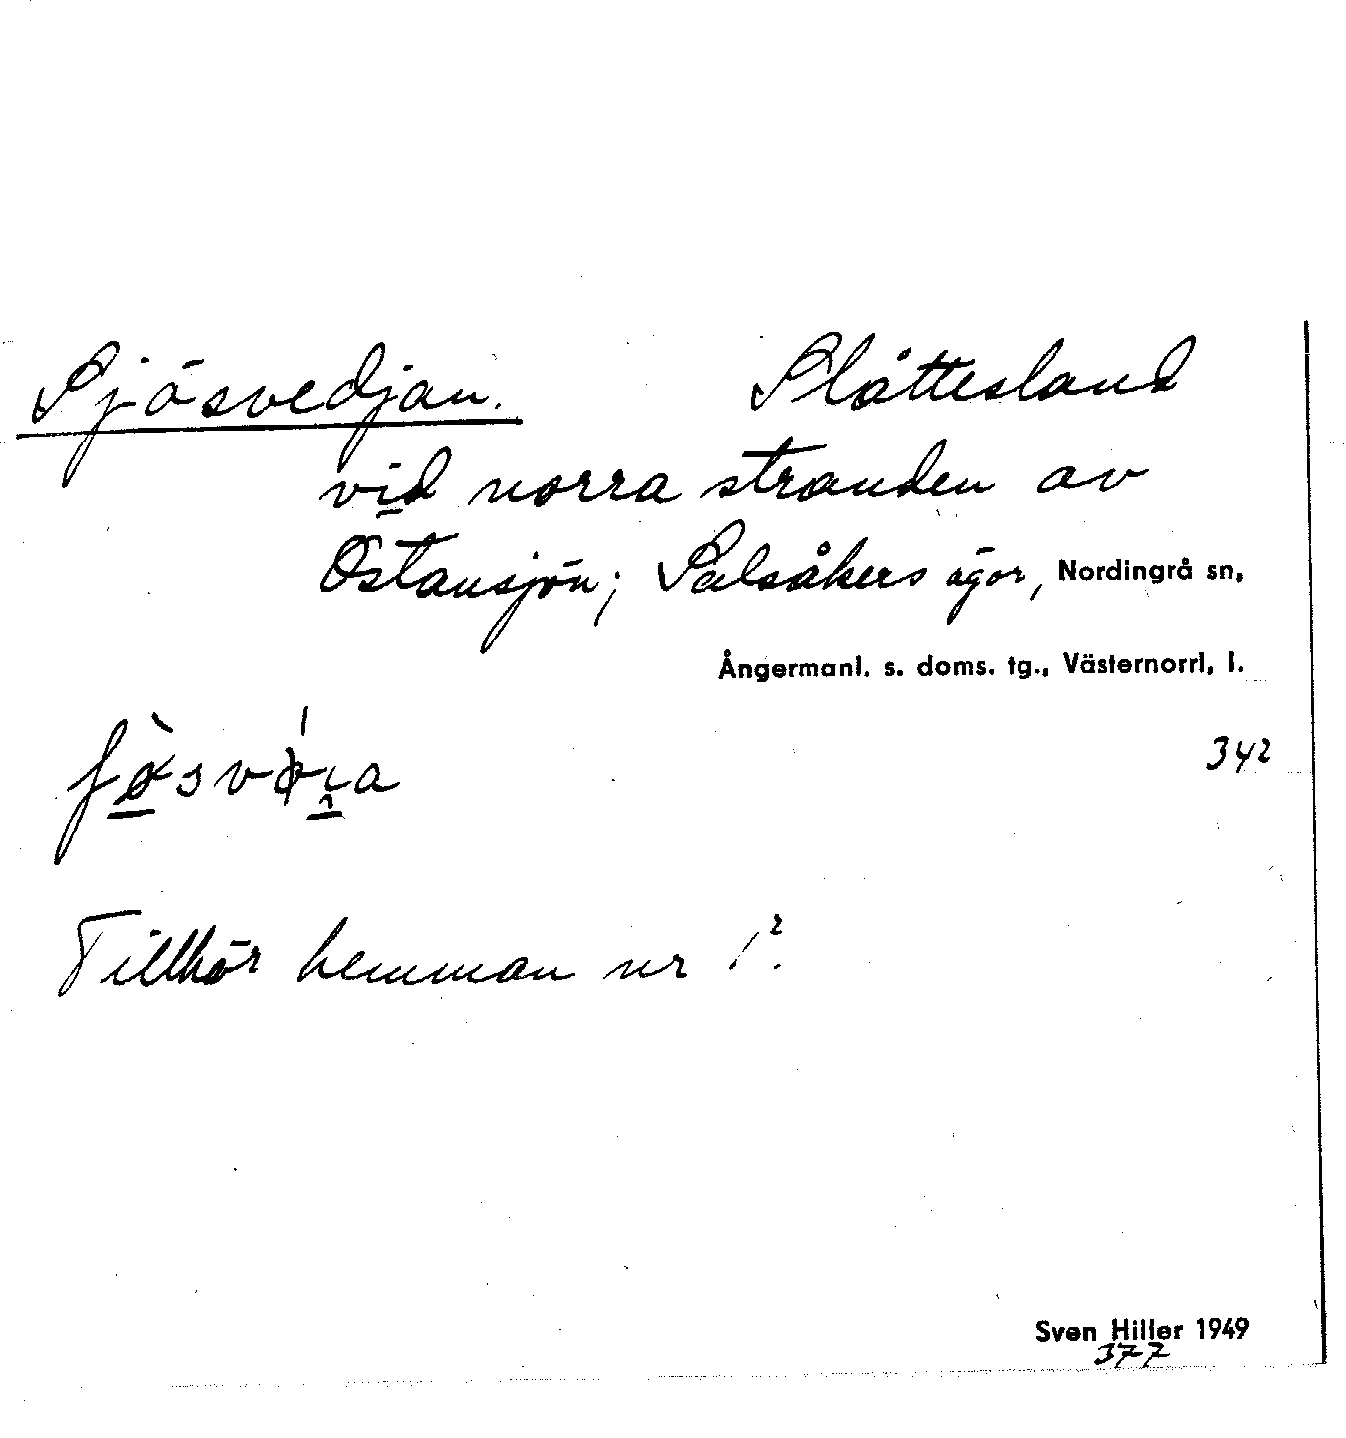 Sjösvedjan. Slåttesland
vid norra stranden av
Östansjön; Salsåkers ägor, Nordingrå sn,
Ångermanl. s. doms. tg., Västernorrl. l.
342
Tillhör hemman nr 1².
Sven Hiller 1949
377